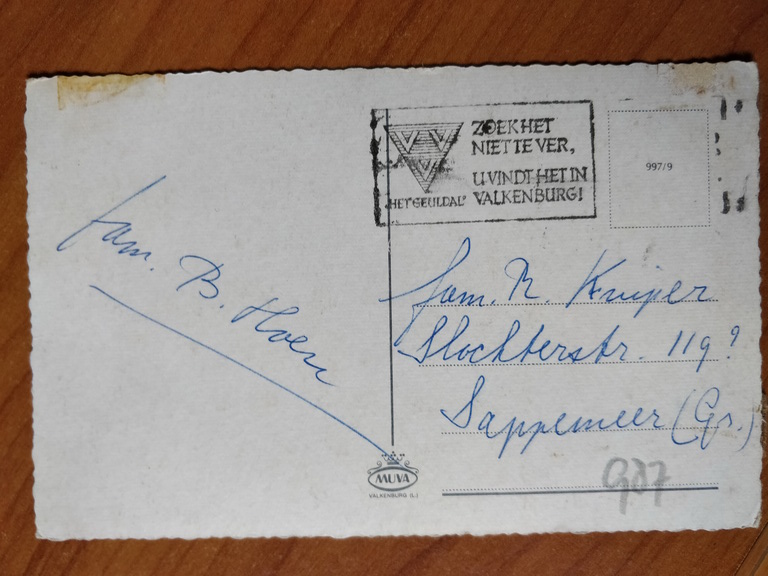 ZOEK HET
NIET TE VER,
U VINDT HET IN
VALKENBURG!
"HET GEULDAL"
997/9
fam. B. Hoen
fam. R. Kuijer
Slochterstr. 119?
Sappemeer (Gr.)
MUVA
VALKENBURG (L.)
907